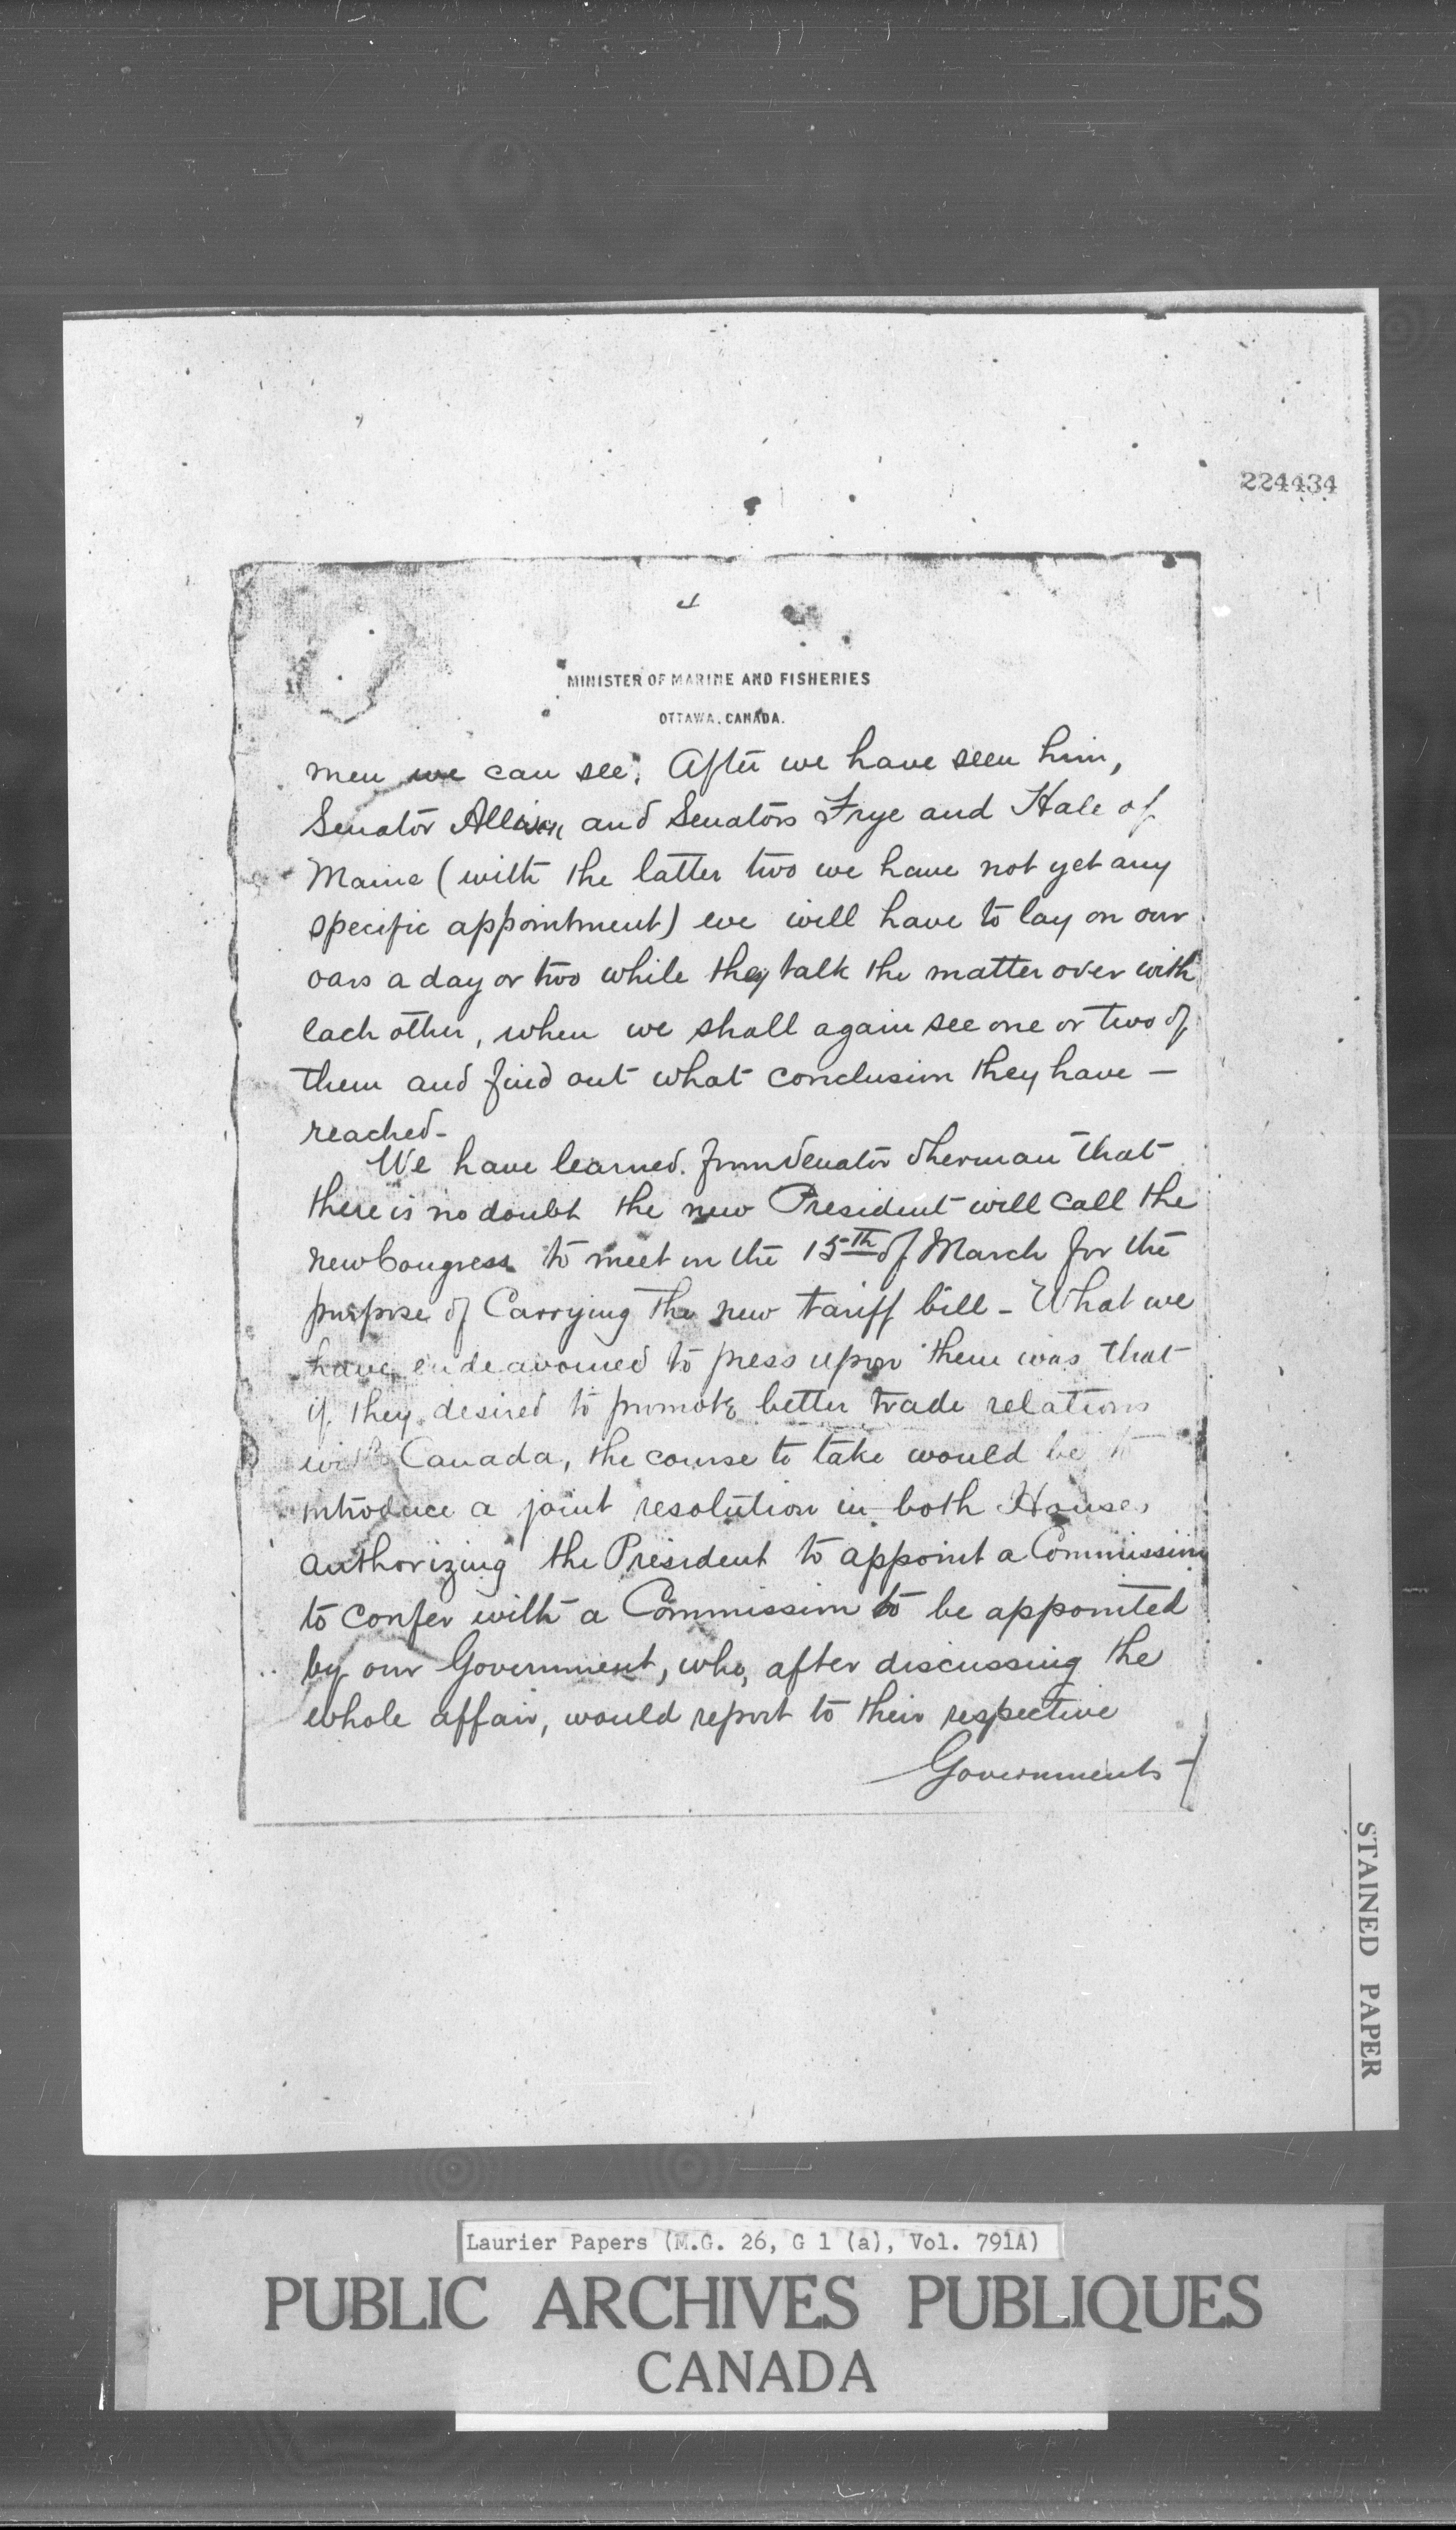 224434
4
MINISTER OF MARINE AND FISHERIES
OTTAWA, CANADA.
men we can see. After we have seen him,
Senator Allison and Senators Frye and Hale of
Maine (with the latter two we have not yet any
specific appointment) we will have to lay on our
oars a day or two while they talk the matter over with
each other, when we shall again see one or two of
them and find out what conclusion they have —
reached —
We have learned from Senator Sherman that
there is no doubt the new President will call the
new Congress to meet on the 15th of March for the
purpose of Carrying the new tariff bill — What we
have endeavoured to press upon them was that
if they desired to promote better trade relations
with Canada, the course to take would be to
introduce a joint resolution in both Houses
authorizing the President to appoint a Commission
to confer with a Commission to be appointed
by our Government, who, after discussing the
whole affair, would report to their respective
Governments —
STAINED PAPER
Laurier Papers (M.G. 26, G 1 (a), Vol. 791A)
PUBLIC ARCHIVES PUBLIQUES
CANADA